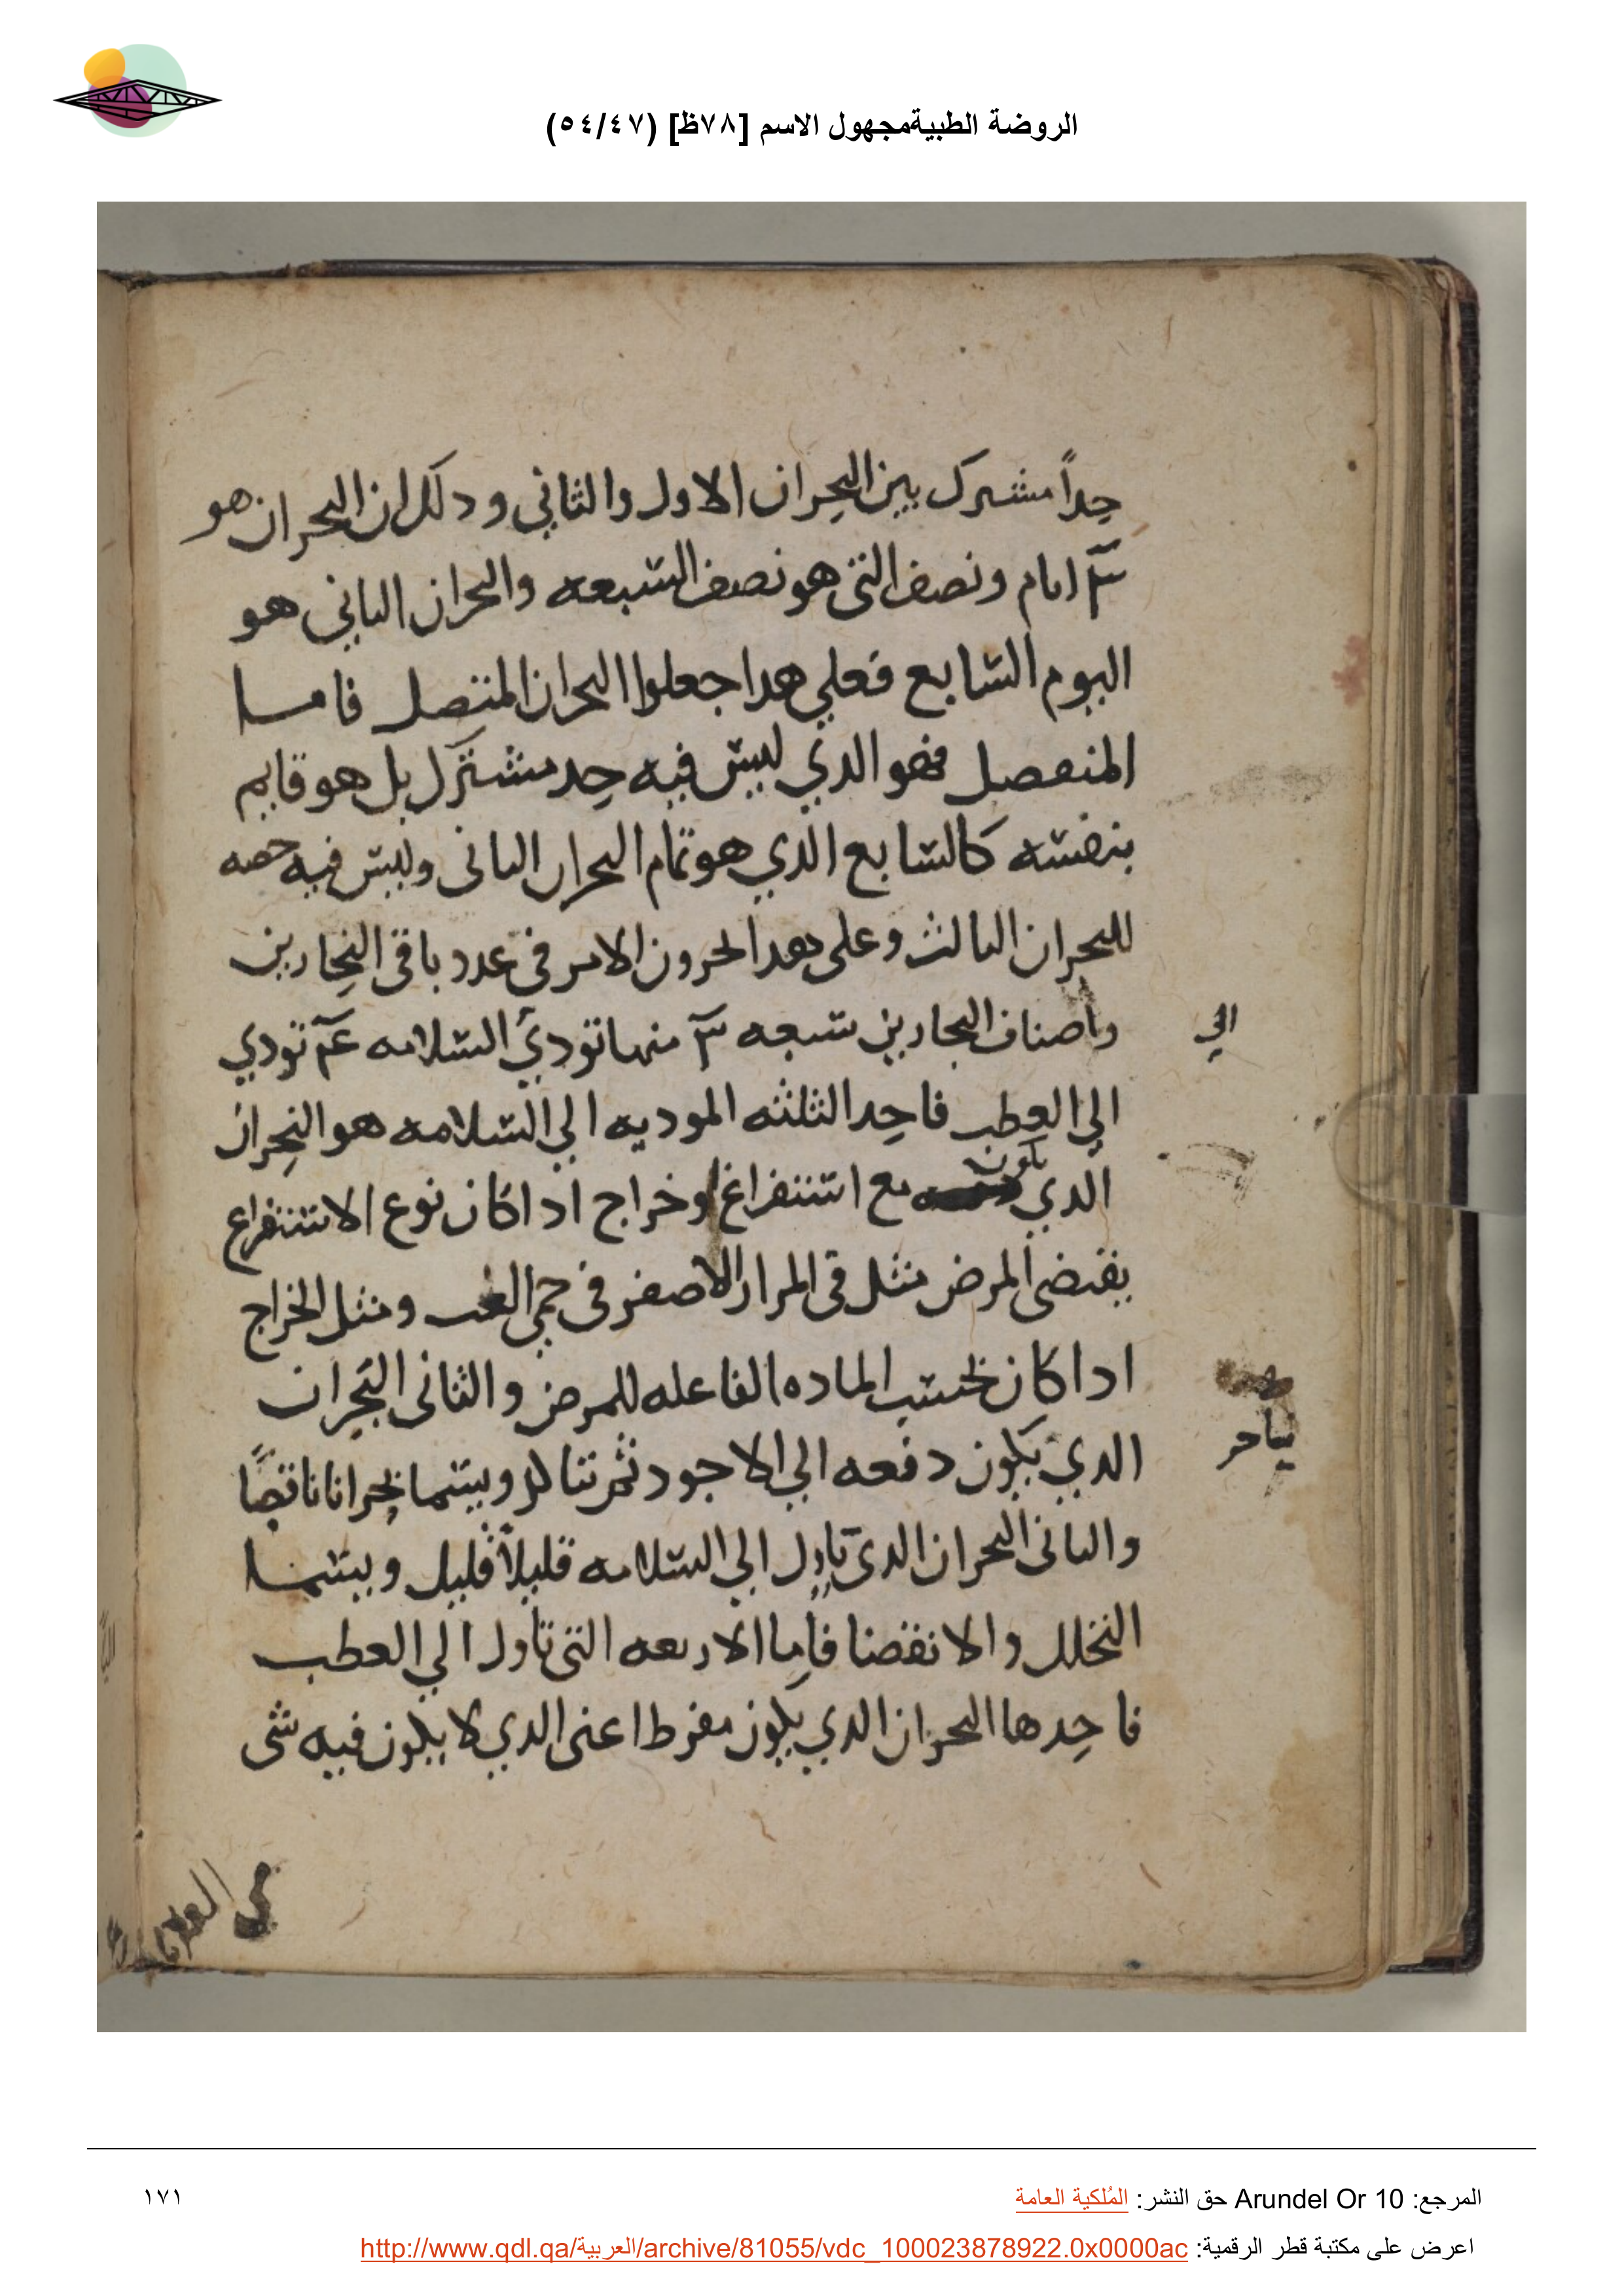 الروضة الطبيةمجهول الاسم [٧٨ظ] (٥٤/٤٧)
حداً مشترك بين البحران الاول والثاني ودلك ان البحران هو
٣ ايام ونصف التي هو نصف السبعه والبحران الثاني هو
اليوم السابع فعلي هدا جعلوا البحران المتصل فامسا
المنفصل فهو الدي ليس فيه حد مشترك بل هو قايم
بنفسه كالسابع الدي هو تمام البحران الثاني وليس فيه حصه
للبحران الثالث وعلى هدا الامر في عدد باقي البحارين
واصناف البحارين سبعه ٣ منها تودي السلامه تودي
الي
الي العطب فاحد الثلثه الموديه الي السلامه هو البحران
الدي يكون مع استفراغ او خراج ادا كان نوع الاستفراغ
يقتضي المرض مثل قي المرار الاصفر في حمي الغب ومثل الخراج
ادا كان بحسب الماده الفاعله للمرض والثاني البحران
الدي يكون دفعه الي الاجود ثم ويسما بحرانا ناقصًا
والثاني البحران الدي ياول الي السلامه قليلاً قليل ويسما
التحلل والانقضا فاما الاربعه التي تاول الي العطب
فاحدها البحران الدي يكون مفرط اعني الدي لا يكون فيه شي
المرجع: Arundel Or 10 حق النشر: المُلكية العامة
١٧١
اعرض على مكتبة قطر الرقمية: http://www.qdl.qa/العربية/archive/81055/vdc_100023878922.0x0000ac